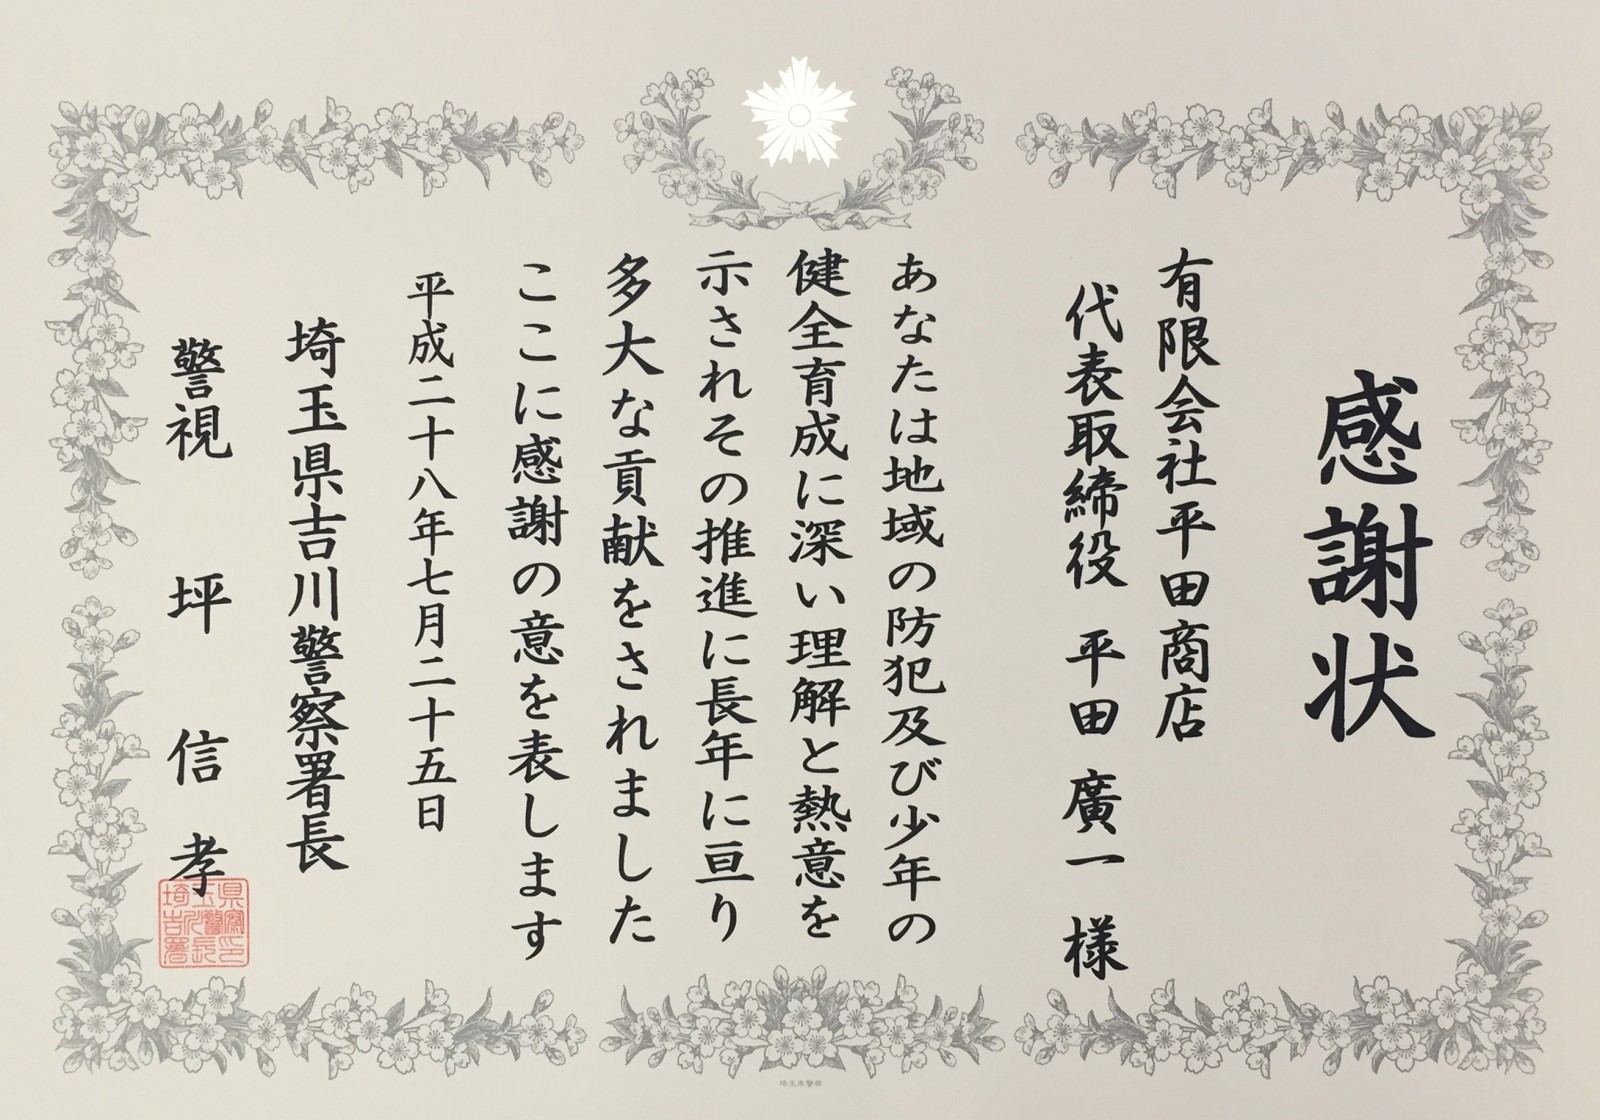 感謝状
有限会社平田商店
代表取締役 平田 廣一 様
あなたは地域の防犯及び少年の
健全育成に深い理解と熱意を
示されその推進に長年に亘り
多大な貢献をされました
ここに感謝の意を表します
平成二十八年七月二十五日
埼玉県吉川警察署長
警視 坪 信 孝
埼玉県吉川警察署長印
埼玉県警察